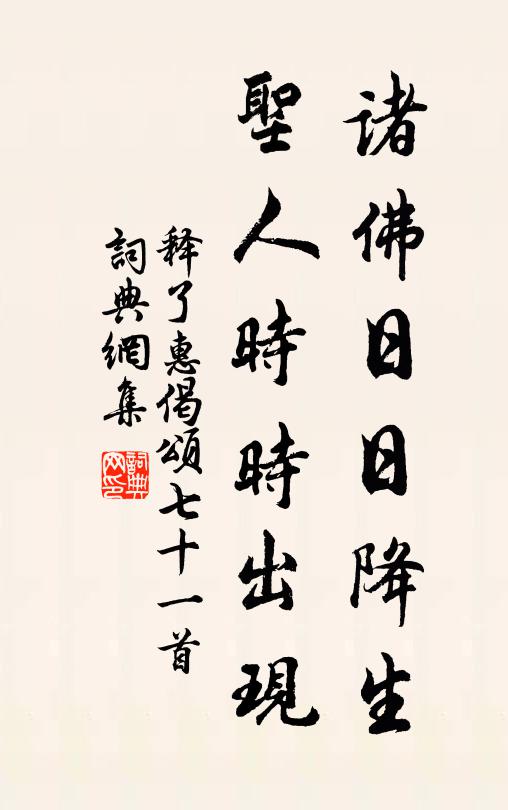 諸佛日日降生
聖人時時出現
释了惠偈頌七十一首
詞典網集
詞典網印